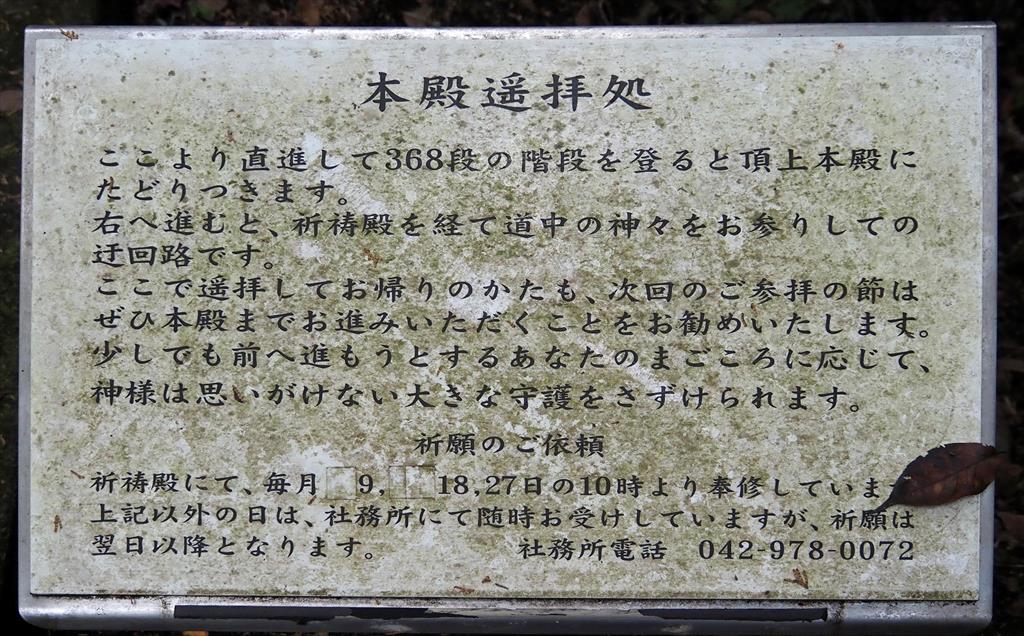 本殿遥拝処
ここより直進して368段の階段を登ると頂上本殿に
たどりつきます。
右へ進むと、祈祷殿を経て道中の神々をお参りしての
迂回路です。
ここで遥拝してお帰りのかたも、次回のご参拝の節は
ぜひ本殿までお進みいただくことをお勧めいたします。
少しでも前へ進もうとするあなたのまごころに応じて、
神様は思いがけない大きな守護をさずけられます。
祈願のご依頼
祈祷殿にて、毎月 9, 18,27日の10時より奉修していま
上記以外の日は、社務所にて随時お受けしていますが、祈願は
翌日以降となります。 社務所電話 042-978-0072